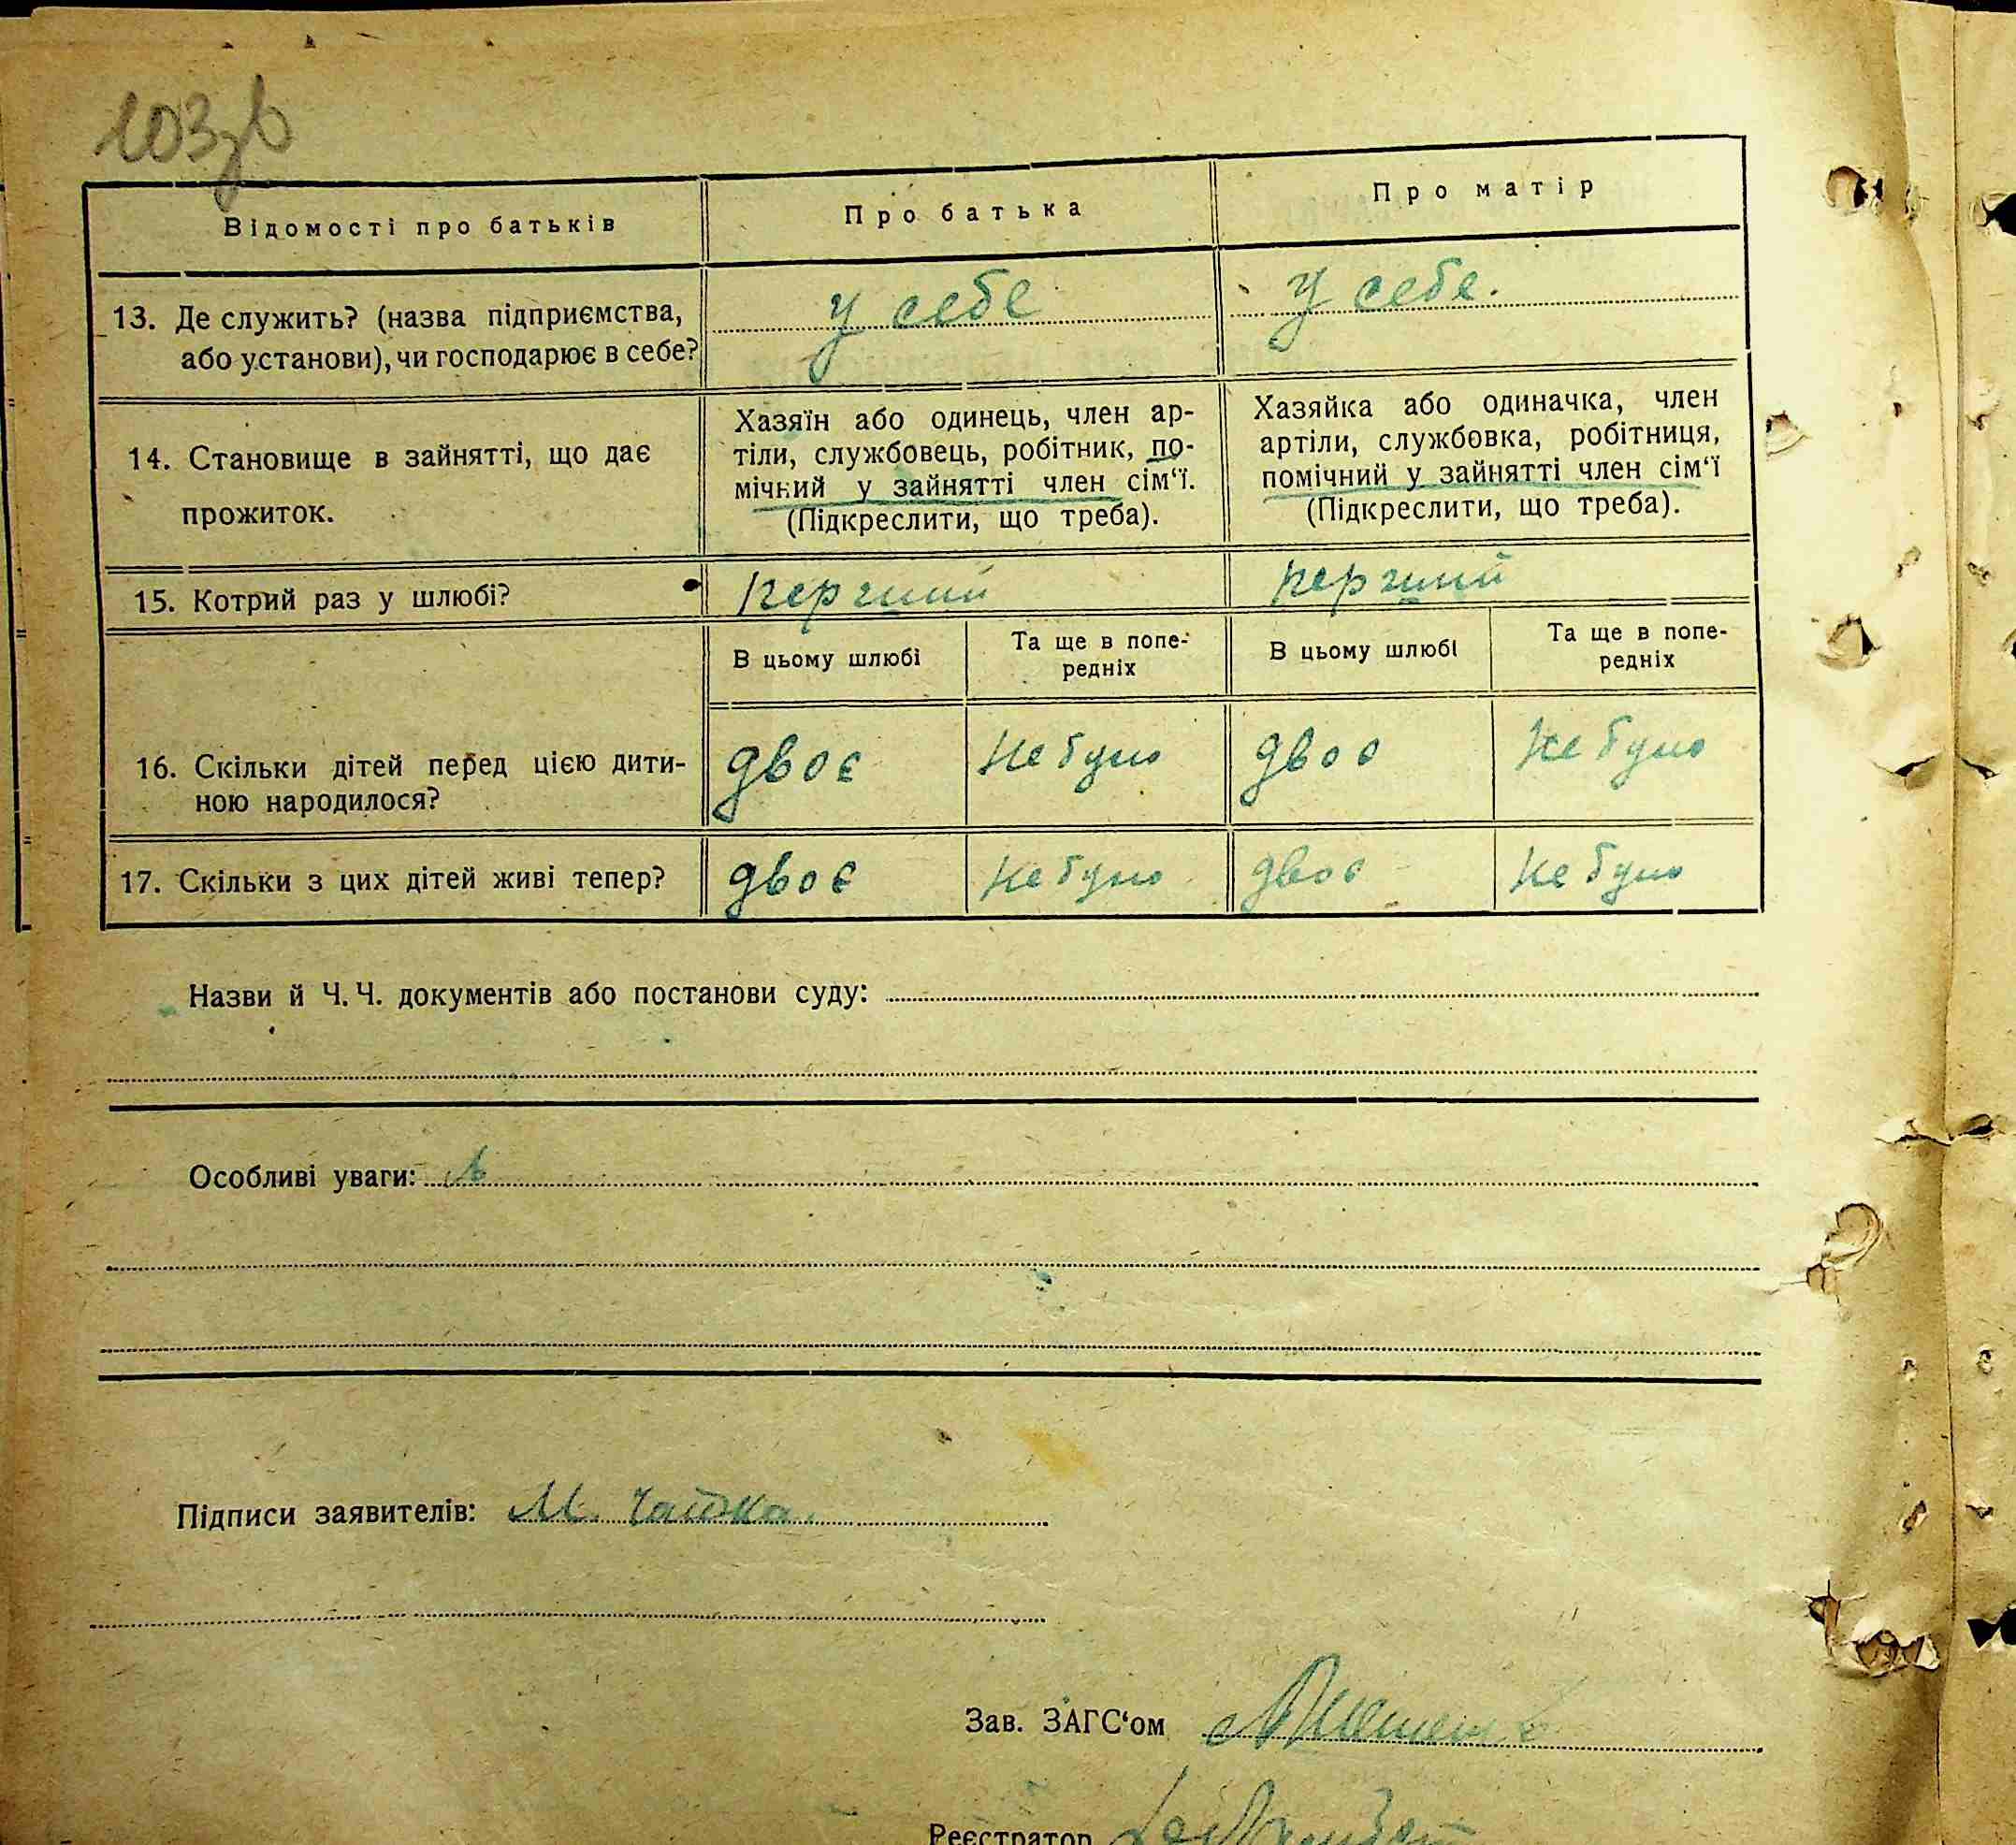 103зв
Відомості про батьків
Про батька
Про матір
13. Де служить? (назва підприємства,
або установи), чи господарює в себе?
у себе
у себе.
14. Становище в зайнятті, що дає
прожиток.
Хазяїн або одинець, член ар-
тіли, службовець, робітник, по-
мічний у зайнятті член сім‘ї.
(Підкреслити, що треба).
Хазяйка або одиначка, член
артіли, службовка, робітниця,
помічний у зайнятті член сім‘ї
(Підкреслити, що треба).
15. Котрий раз у шлюбі?
перший
перший
В цьому шлюбі
Та ще в попе-
редніх
В цьому шлюбі
Та ще в попе-
редніх
16. Скільки дітей перед цією дити-
ною народилося?
двоє
не було
двоє
не було
17. Скільки з цих дітей живі тепер?
двоє
не було
двоє
не було
Назви й Ч. Ч. документів або постанови суду:
Особливі уваги:
Підписи заявителів: М. Чайка.
Зав. ЗАГС‘ом
Реєстратор